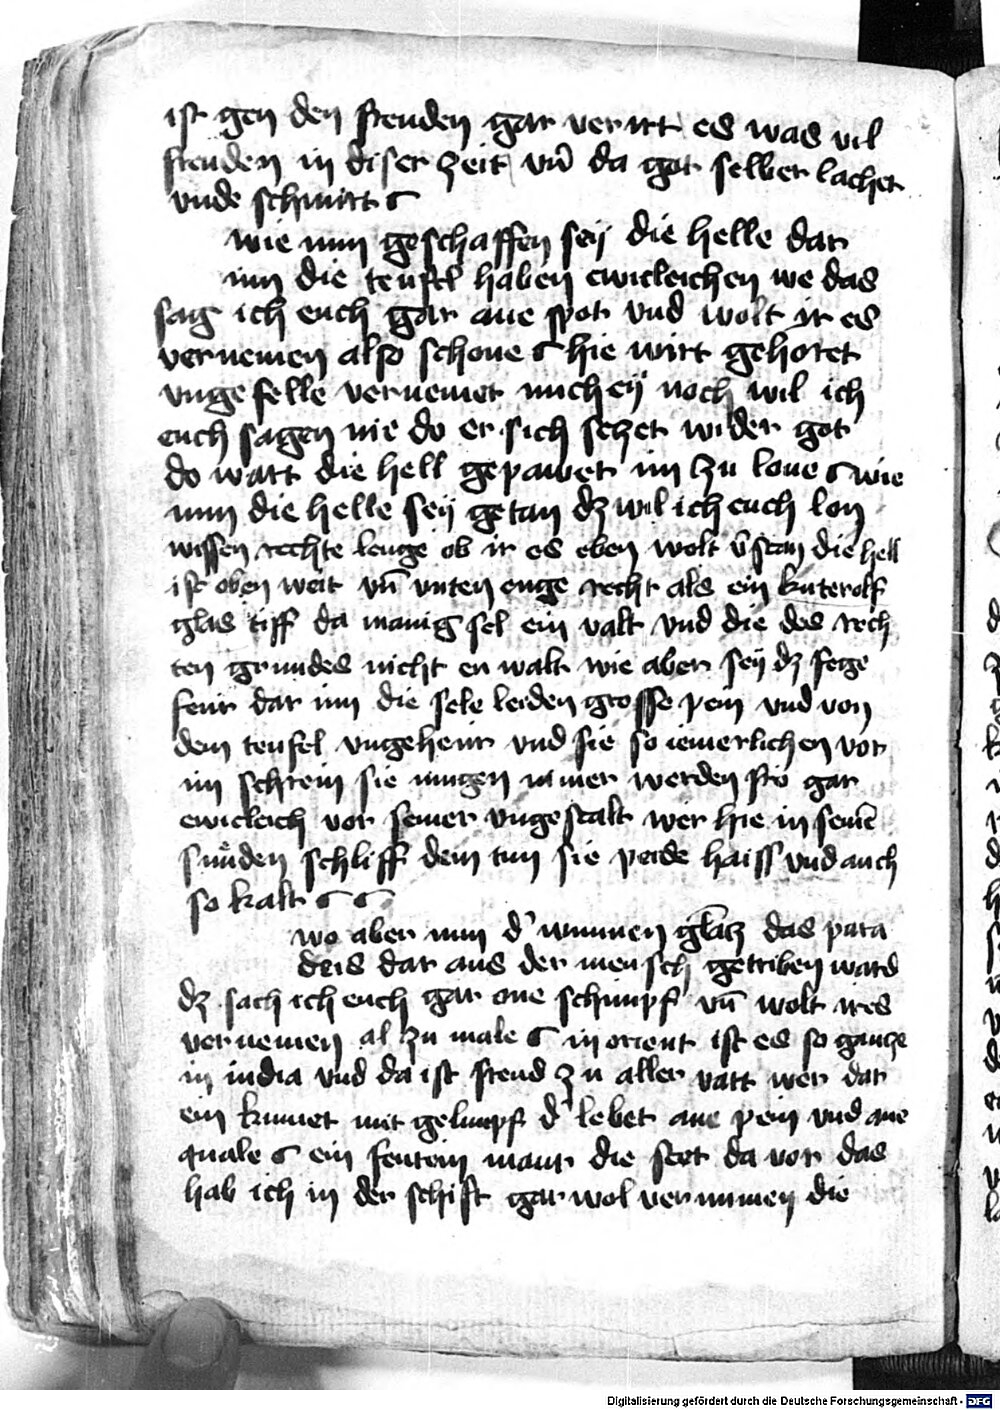 ist gen den freuden gar verirt es was vil
freuden in diser zeit vn̄ da got selber lachet
vnde schmirt
wie nun geschaffen seÿ die helle dar
inn die teufel haben ewicleichen we das
sag ich euch gar ane spot vnd wolt ir es
vernemen also schone hie wirt gehoret
vngefelle vernemet mich eÿ noch wil ich
euch sagen me do er sich seczet wider got
do wart die hell gepawet im zu lone wie
nun die helle seÿ getan dz wil ich euch lon
wissen rechte lenge ob ir es eben wolt v̄stan die hell
ist oben weit vn̄ vnten enge recht als ein kuterolf
glas tiff da manig sel ein valt vnd die des rech
ten grundes nicht en walt wie aber seÿ dz fege
feur dar inn die sele leiden grosse pein vnd von
dem teufel vngeheur vnd sie so iemerlichen vor
im schrein sie mugen nimer werden fro gar
ewicleich vor seiner vngestalt wer hie in seinē
sunden schliff dem tun sie peide haiss vnd auch
so kalt
wo aber nun d' wunnen glatz das para
deis dar aus der mensch getriben ward
dz sach ich euch gar one schimpf vn̄ wolt irs
vernemen al zu male in orient ist es so gancze
in india vnd da ist freud zu aller vart wer dar
ein kumet mit gelimpf d' lebet ane pein vnd ane
quale ein feurein maur die stet da vor das
hab ich in der schift gar wol vernumen die
Digitalisierung gefördert durch die Deutsche Forschungsgemeinschaft - DFG